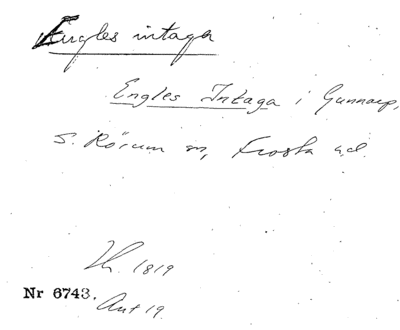 Engles intaga
Engles Intaga i Gunnarp,
S. Rörum sn, Frosta hd.
Lh. 1819
Nr 6743.
Ant 19.